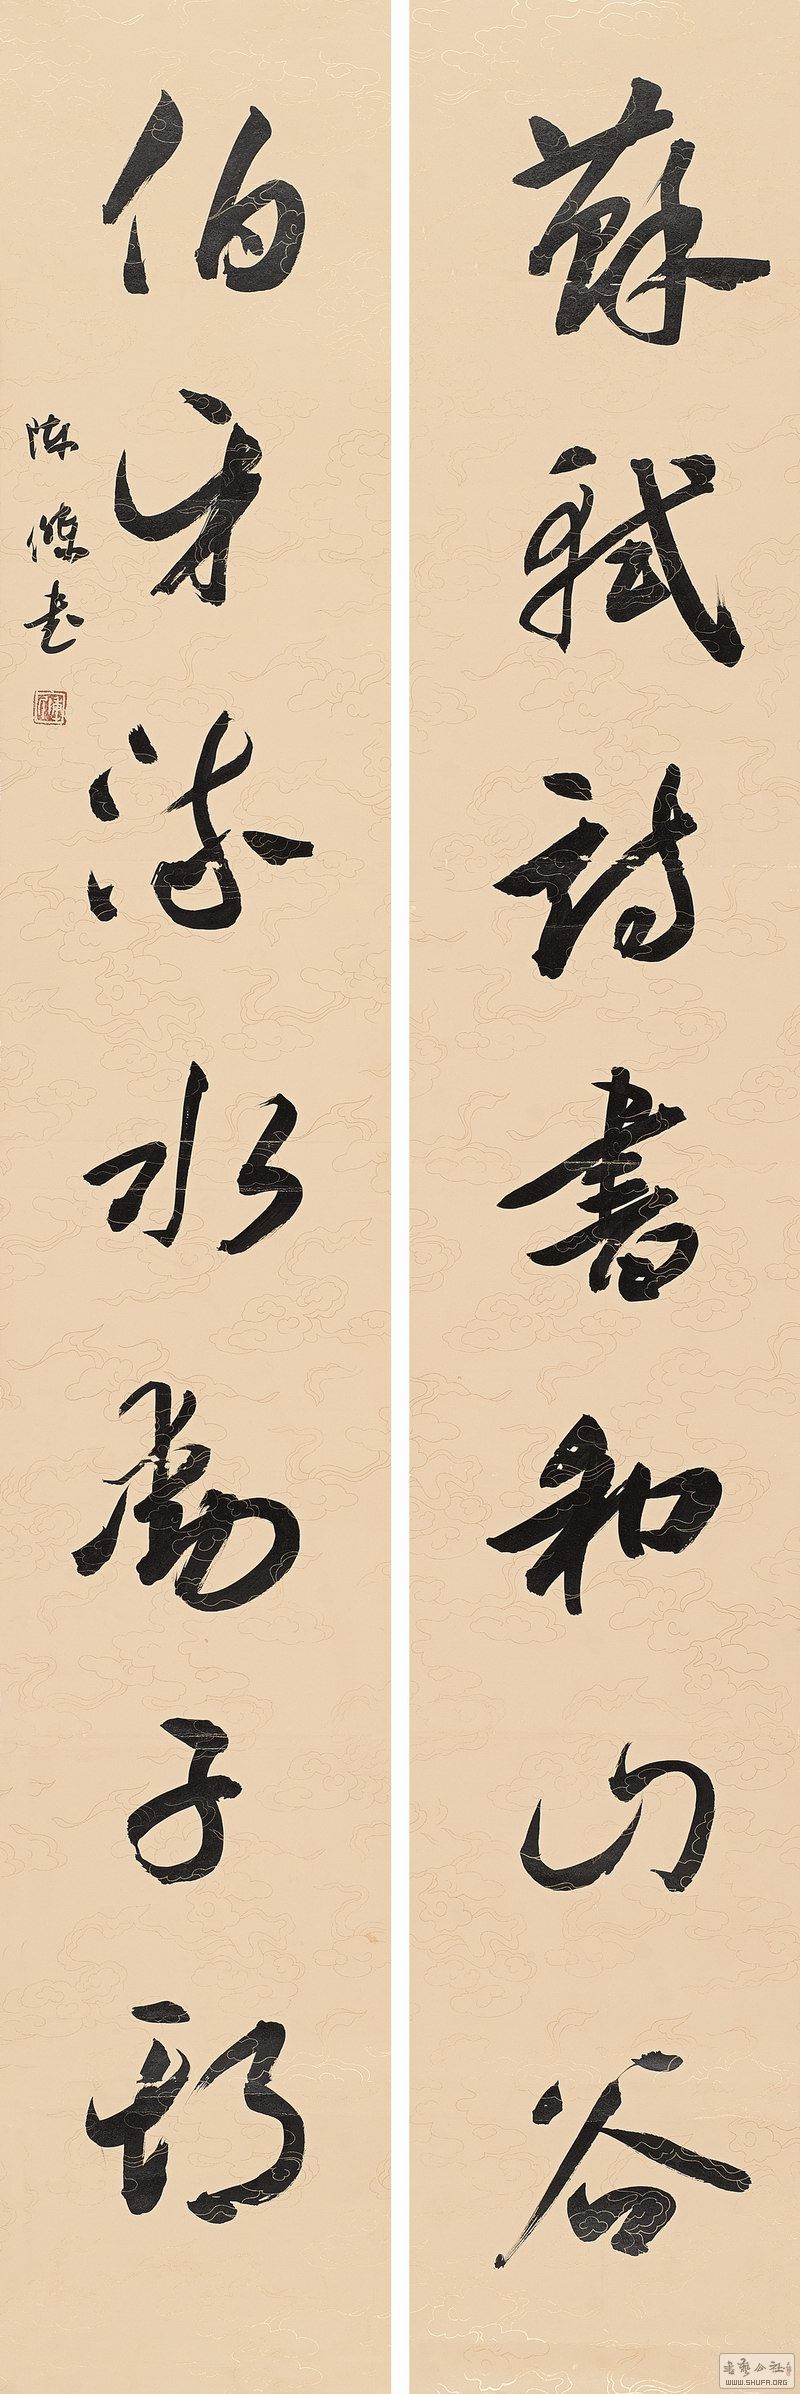 蘇軾詩書和山谷
伯牙流水動子期
陳條書
書藝公社
WWW.SHUFA.ORG